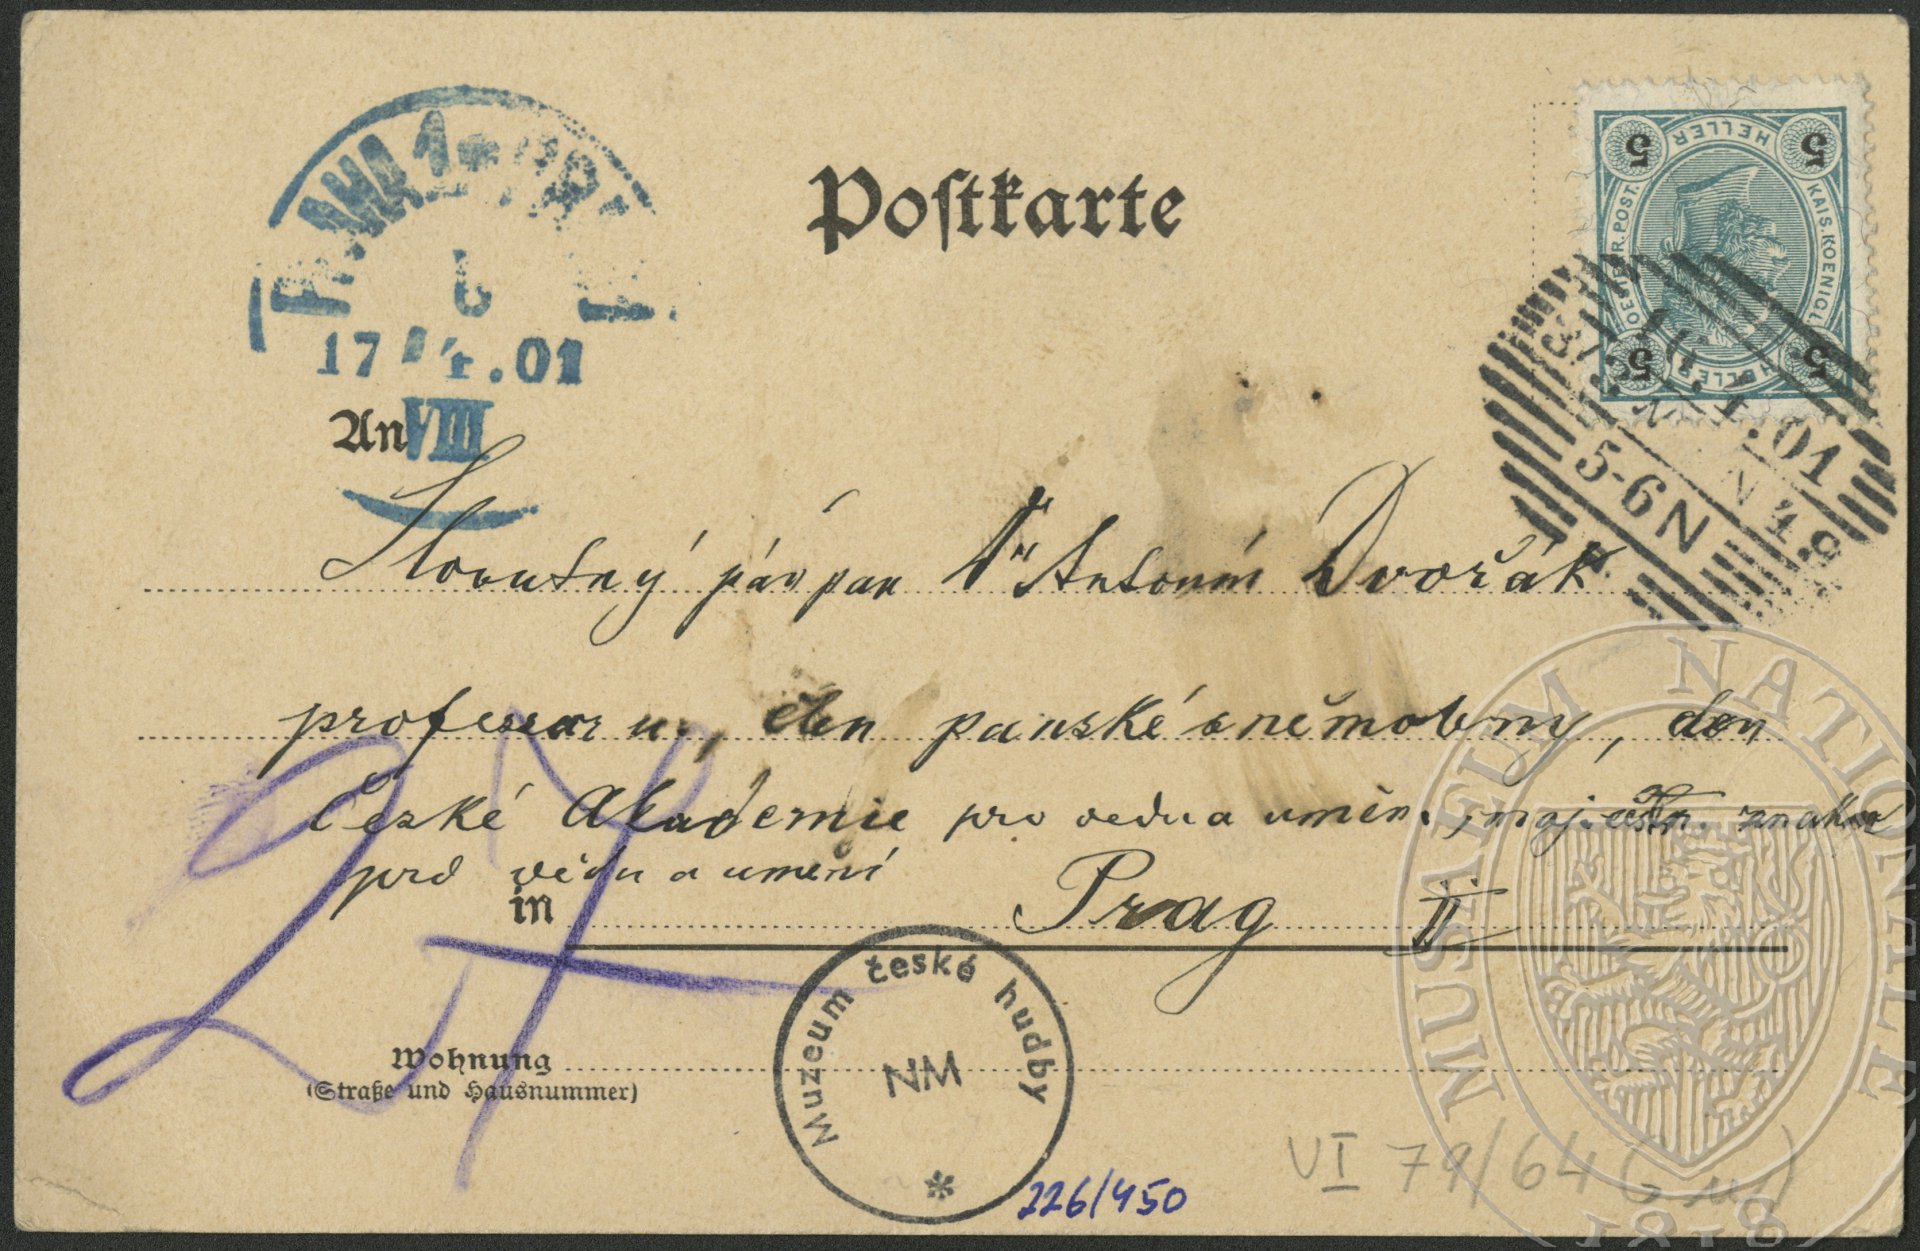 Postkarte
HELLER
KAIS. KOENIGL.
OESTERR. POST.
HELLER
5 5
5 5
17 4.01
VIII
.01
5-6N
An
Slovutný pán pan Dr Antonín Dvořák
professor u., člen panské sněmovny, člen
České Akademie pro vědu a uměn.,
pro vědu a umění
in Prag II
Wohnung
(Straße und Hausnummer)
Muzeum české hudby
NM
*
226/450
VI 79/64
MUSEUM NATIONALE
1818
27